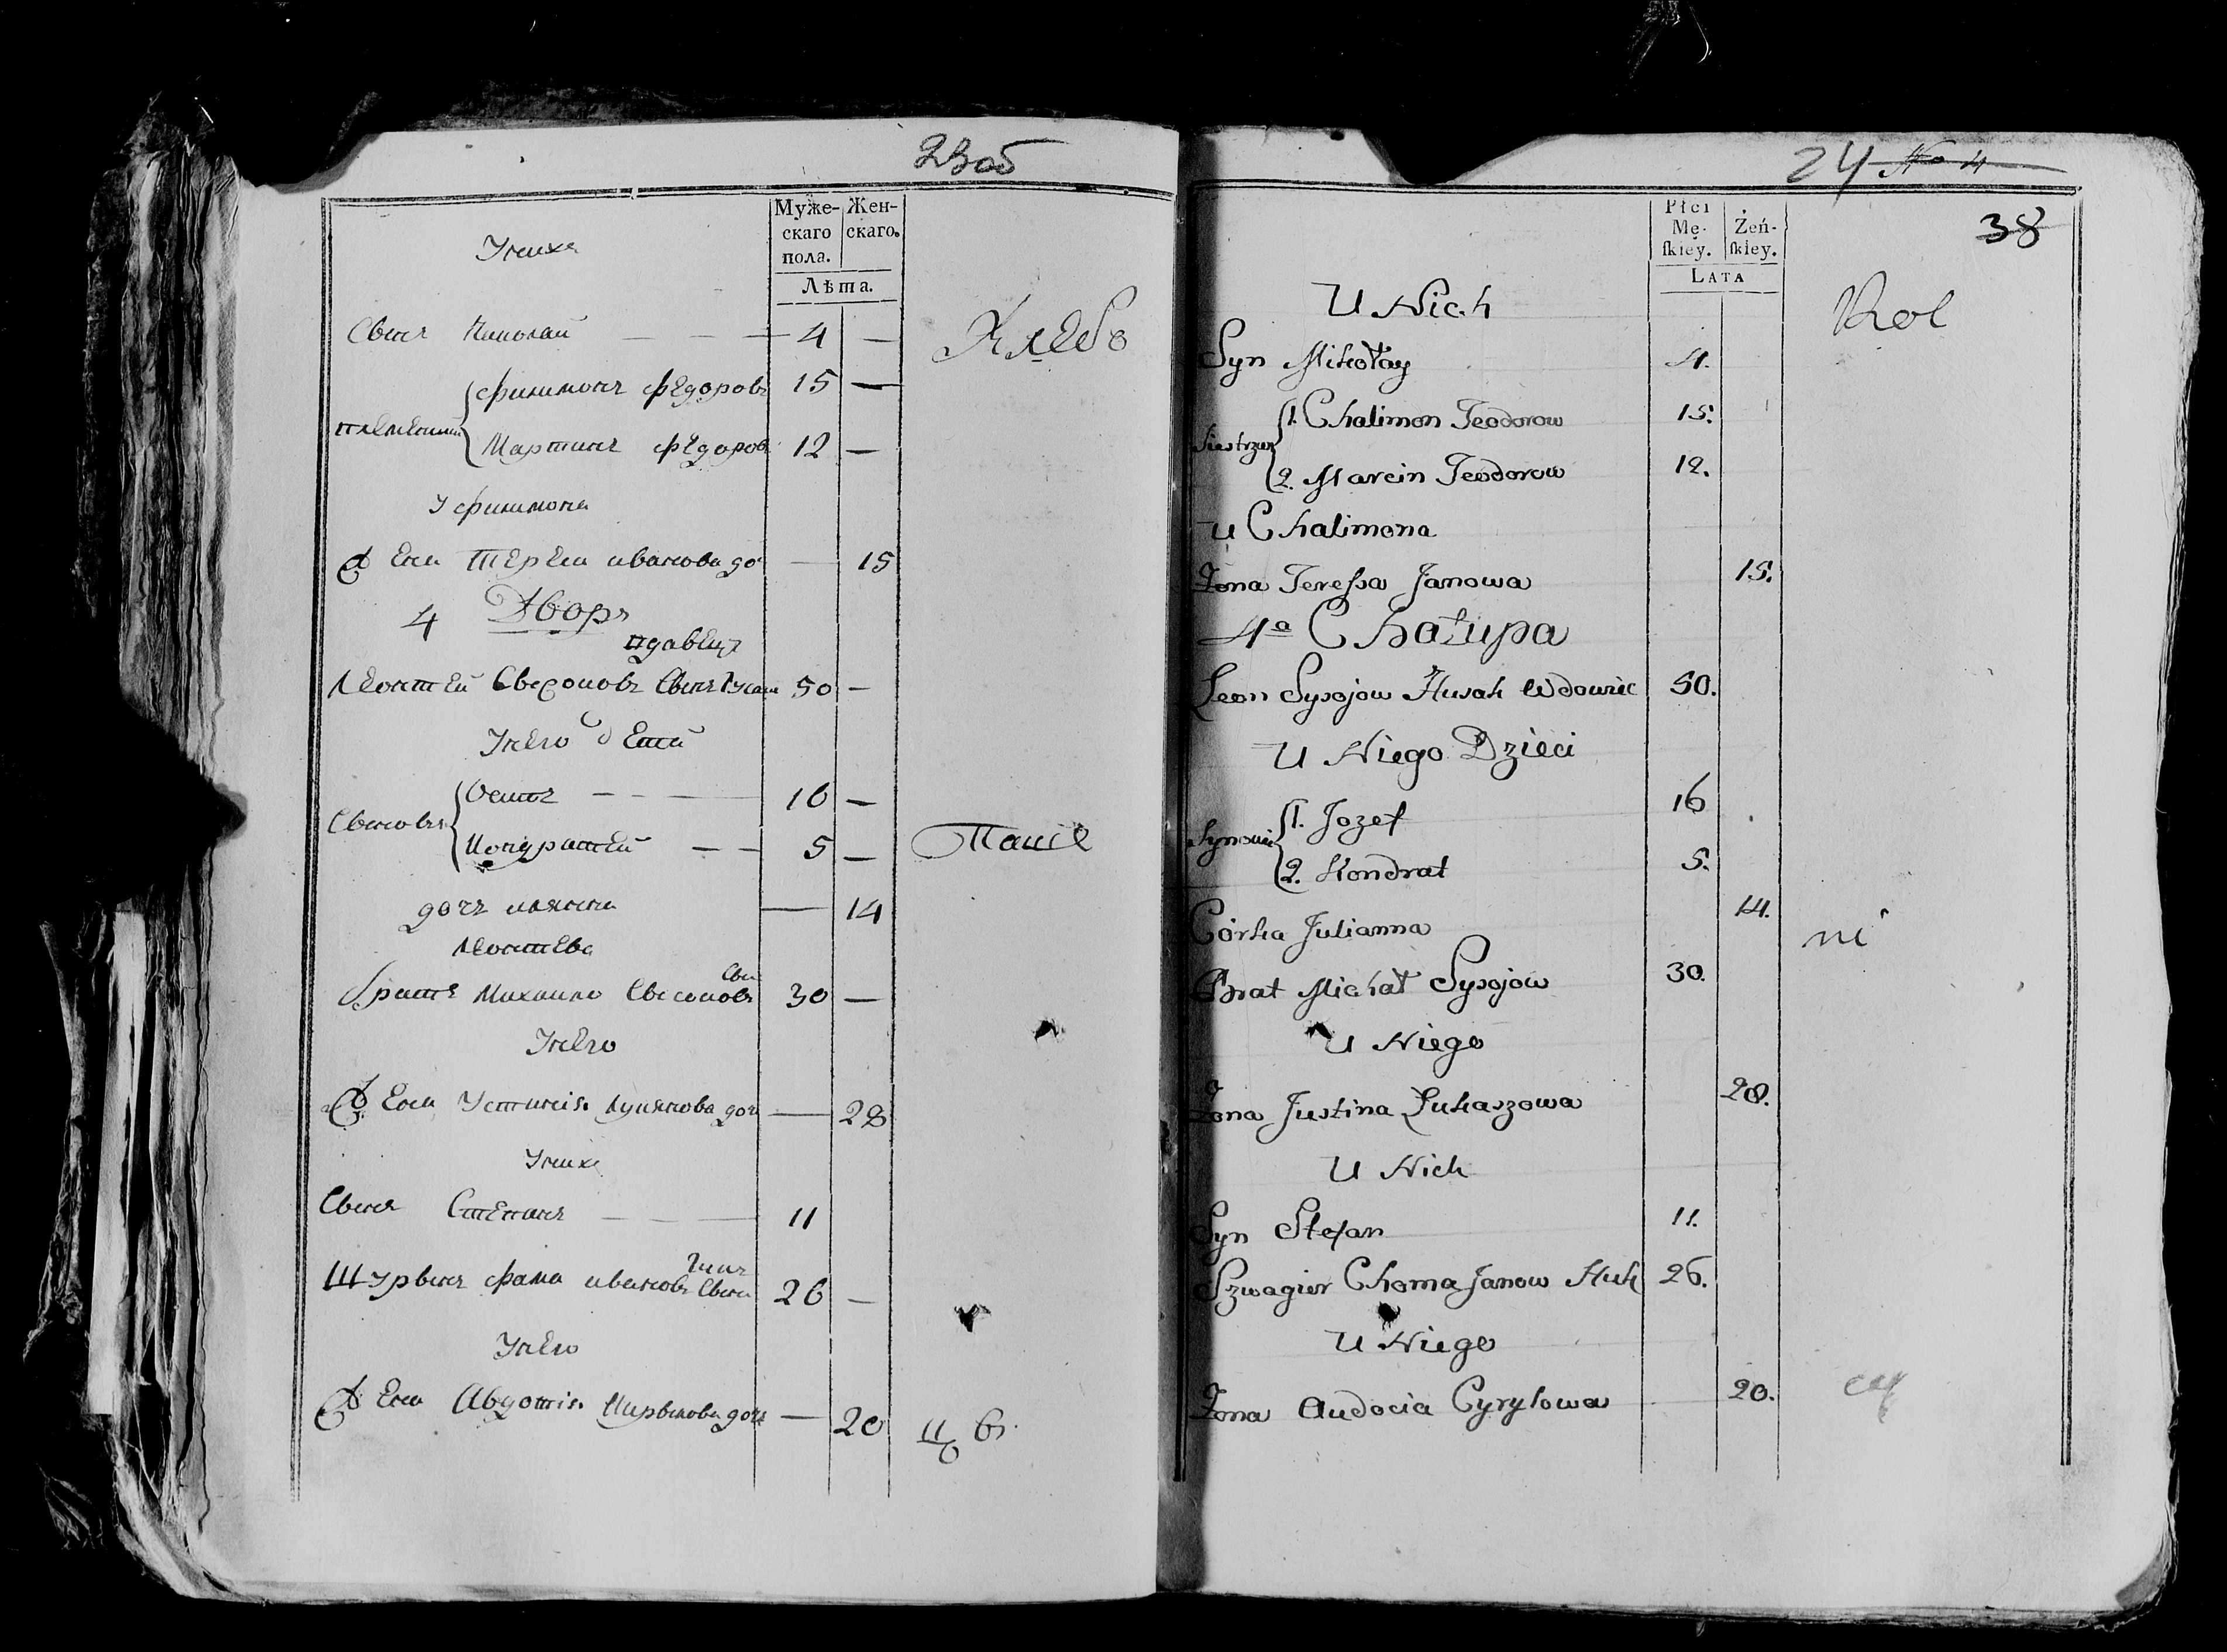 23об
Муже- Жен-
скаго скаго.
пола.
Лѣта.
У них
Сынъ Николай — — — 4 —
племенники Филимонъ Федоровъ 15 —
Мартинъ Федоровъ 12 —
У Филимона
Жена Терезя иванова доч — 15
4 Дворъ
вдавецъ
Леонтей Сысоювъ Сынъ 50 —
У него дети
Сыновья Осипъ — — — 16 —
Кондратей — — 5 —
дочъ 14
Леонтева
Сын
братъ Михаило Сысоювъ 30 —
У него
Жена Устинія Лукянова доч — 28
У них
Сынъ Степанъ — — — 11
Шурынъ Фама ивановъ Сынъ 26 —
У него
Жена Авдотія Кирылова доч — 20
24 No 4
38
Płci
Mę- Żeń-
ſkiey. ſkiey.
LATA
U Nich
Syn Mikołay 4.
1. Chalimon Teodorow 15.
2. Marcin Teodorow 12.
u Chalimona
Żona Teressa Janowa 15.
4a Chałupa
Leon Sysojow Husak Wdowiec 50.
U Niego Dzieci
Synowie 1. Jozef 16
2. Kondrat 5.
Córka Julianna 14.
Brat Michał Sysojow 30.
U Niego
Żona Justina Łukaszowa 28.
U Nich
Syn Stefan 11.
Szwagier Choma Janow Huk 26.
U Niego
Żona Audocia Cyryłowa 20.